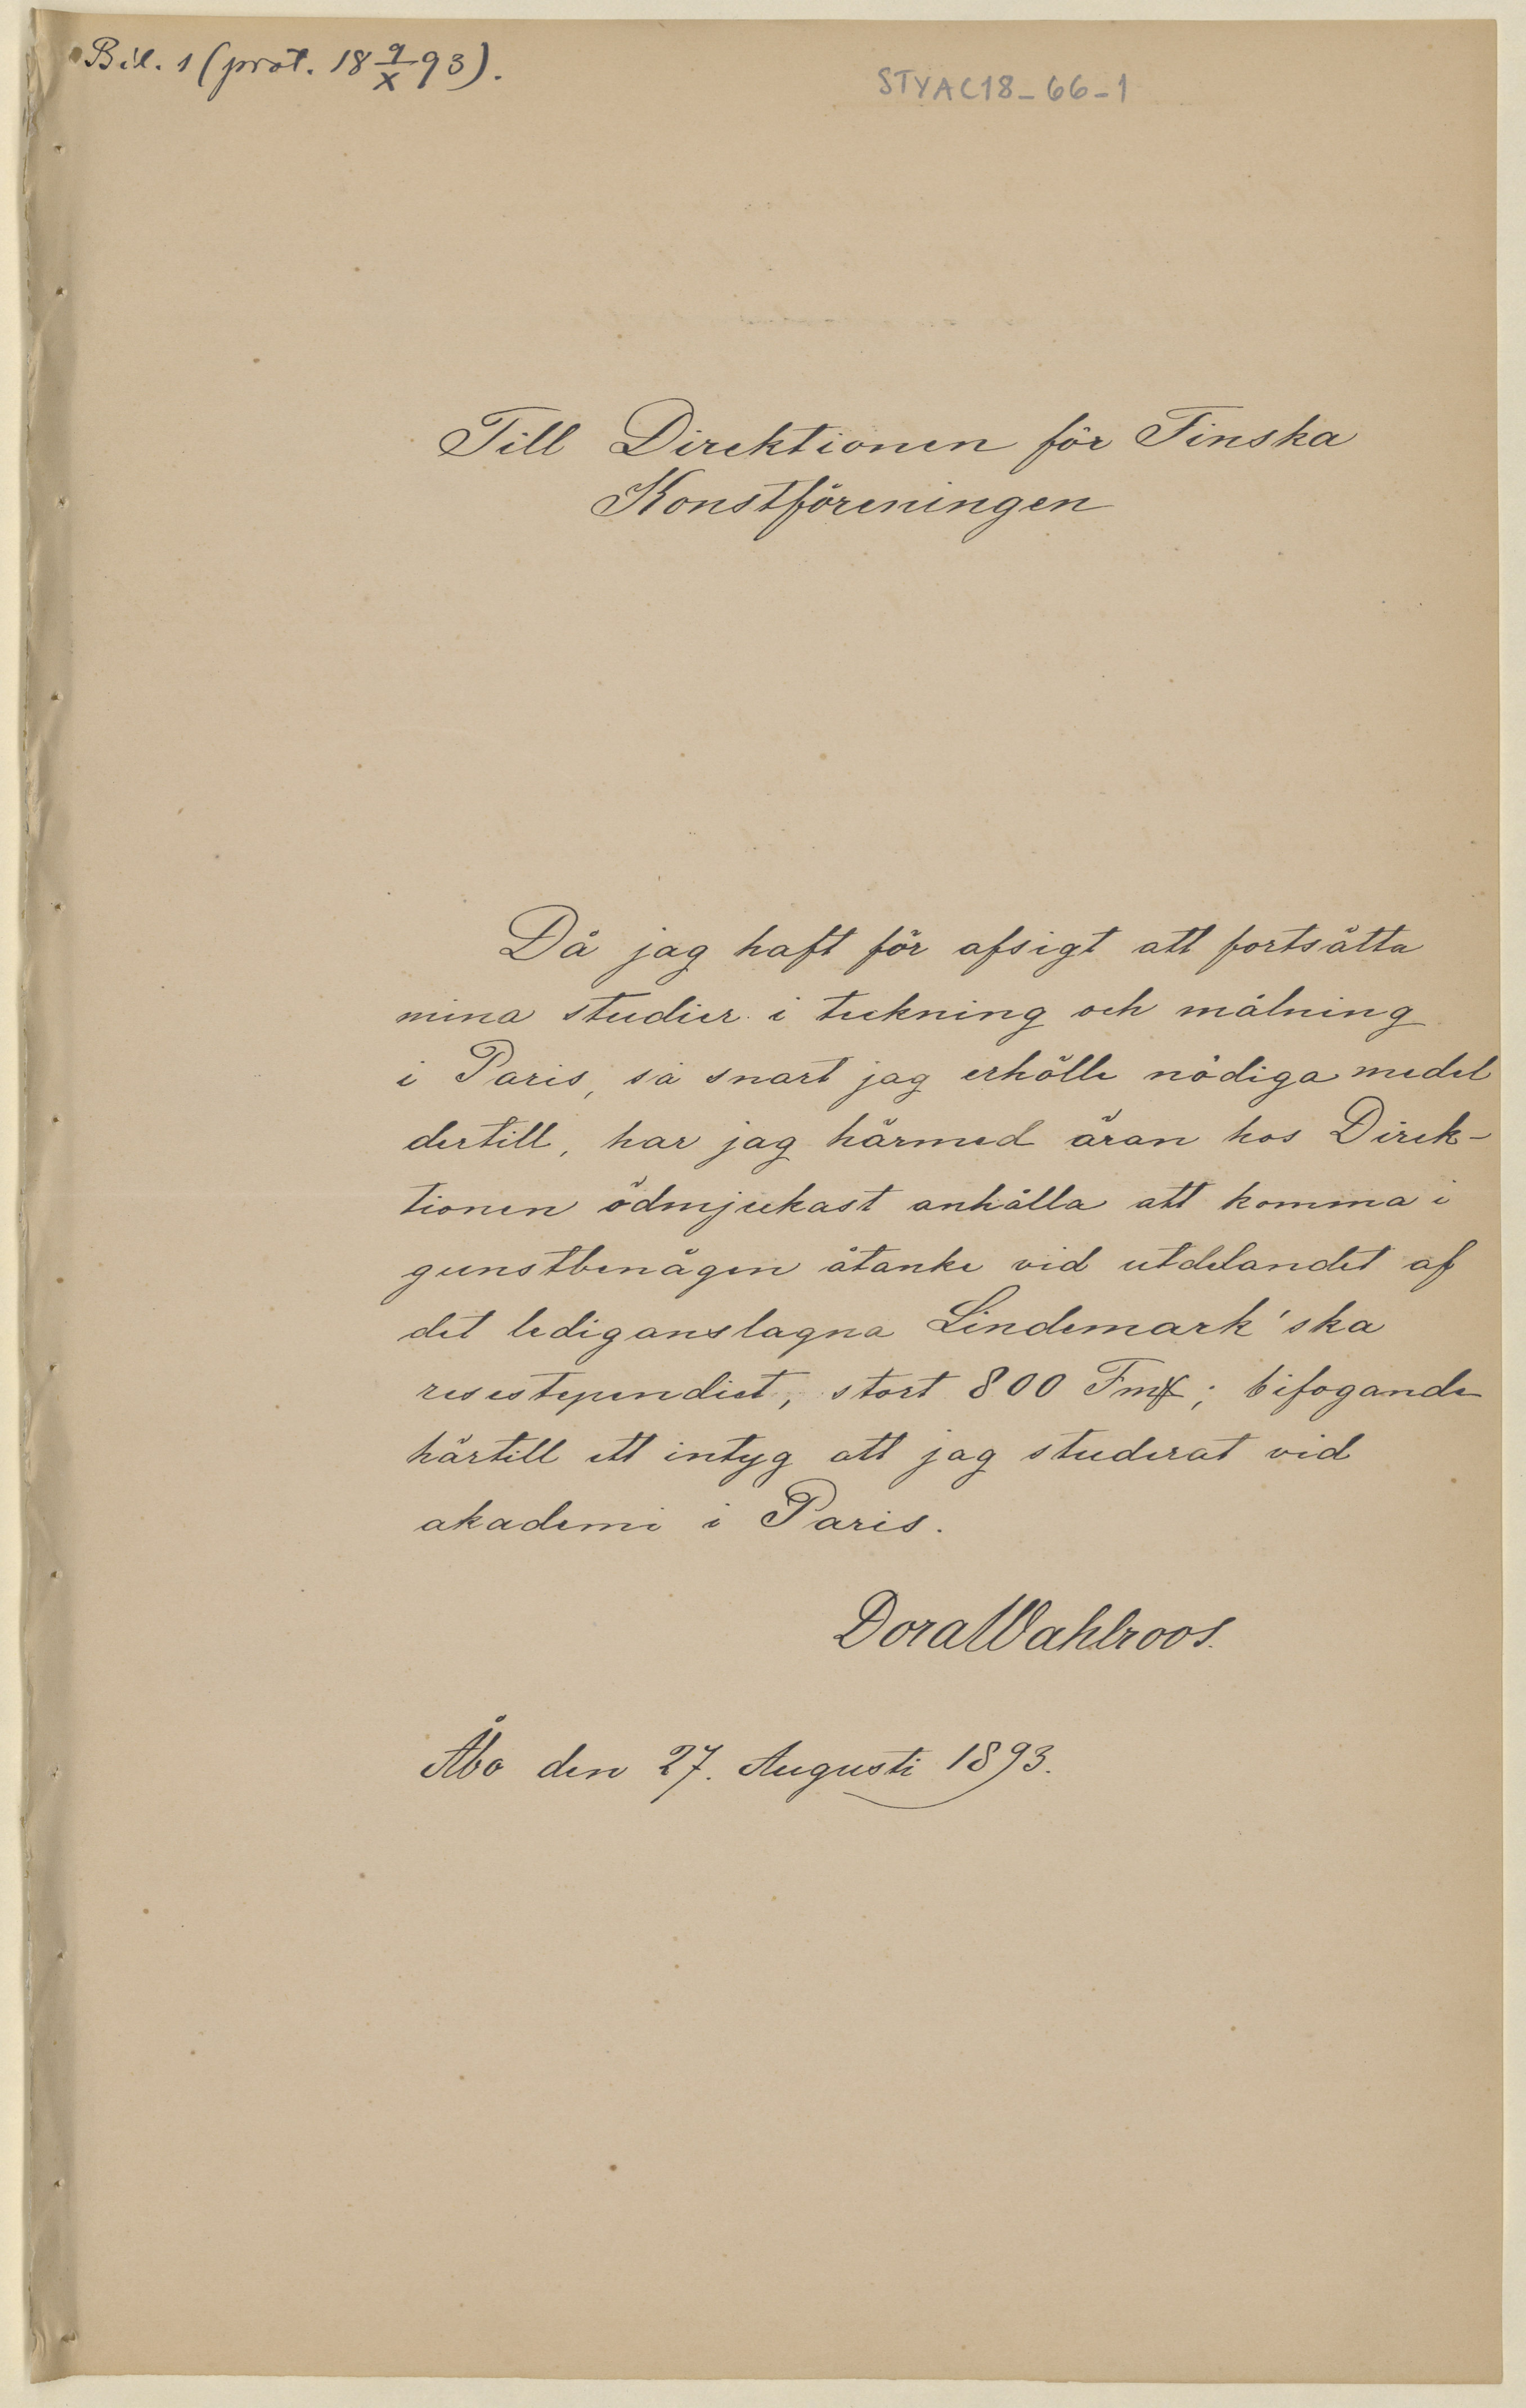 Bil. 1 (prot. 18 9/X 93).
STYAC18_66_1
Till Direktionen för Finska
Konstföreningen
Då jag haft för afsigt att fortsätta
mina studier i teckning och målning
i Paris, så snart jag erhölle nödiga medel
dertill, har jag härmed äran hos Direk-
tionen ödmjukast anhålla att komma i
gunstbenägen åtanke vid utdelandet af
det lediganslagna Lindemark'ska
resestependiet, stort 800 Fmk; bifogande
härtill ett intyg att jag studerat vid
akademi i Paris.
Dora Wahlroos.
Åbo den 27. Augusti 1893.